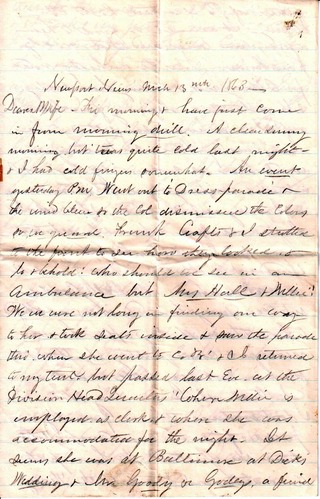 Newport News Mch 13th 1863
Dear Wife - This morning & have just come
in from morning drill. A charming
morning but twas quite cold last night
& I had cold fingers somewhat. An event
yesterday P.M. Went out to Dress parade &
the wind blew & the Col dismissed the Colors
& Frank Crafts & I strolled
to the front to see how they looked &
lo & behold! who should we see in an
Ambulance but Mrs Hall & Willie!
We were not long in finding our way
to her & took seats inside & saw the parade
thro. when she went to Co & I returned
to my tent but passed last Eve. at the
Division Head Quarters where Willie is
employed as clerk & where she was
accommodation for the night. It
seems she was at Baltimore at Dick's
Wedding & Mr Goody or Godey, a friend